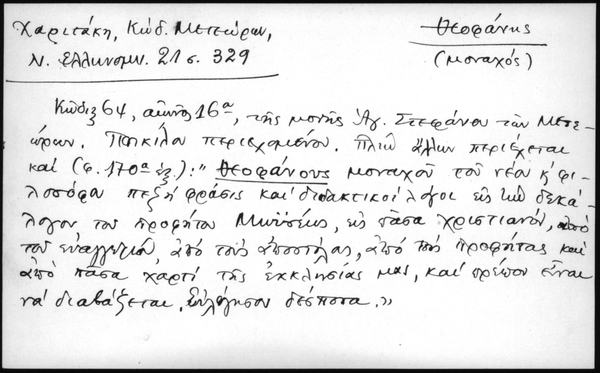 Χαριτάκη, Κώδ. Μετεώρων,
Ν. Ελληνομν. 21 σ. 329
Θεοφάνης
(μοναχός)
Κώδιξ 64, αἰῶνος 16α, τῆς μονῆς Ἁγ. Στεφάνου τῶν Μετε-
ώρων. Ποικίλου περιεχομένου. Πλὴν ἄλλων περιέχεται
καὶ (φ. 170α ἑξ.): "Θεοφάνους μοναχοῦ τοῦ νέου κ φι-
λοσόφου πεζὴ φράσις καὶ διδακτικοὶ λόγοι εἰς τὸν δεκά-
λογον, τοῦ προφήτου Μωϋσέως, εἰς πᾶσα χριστιανόν, ἀπὸ
τοῦ εὐαγγελίου, ἀπὸ τοὺς ἀποστόλους, ἀπὸ τοὺς προφήτας καὶ
ἀπὸ πᾶσα χαρτὶ τῆς ἐκκλησίας μας, καὶ πρέπον εἶναι
νὰ διαβάζεται. Εὐλόγησον δέσποτα.»